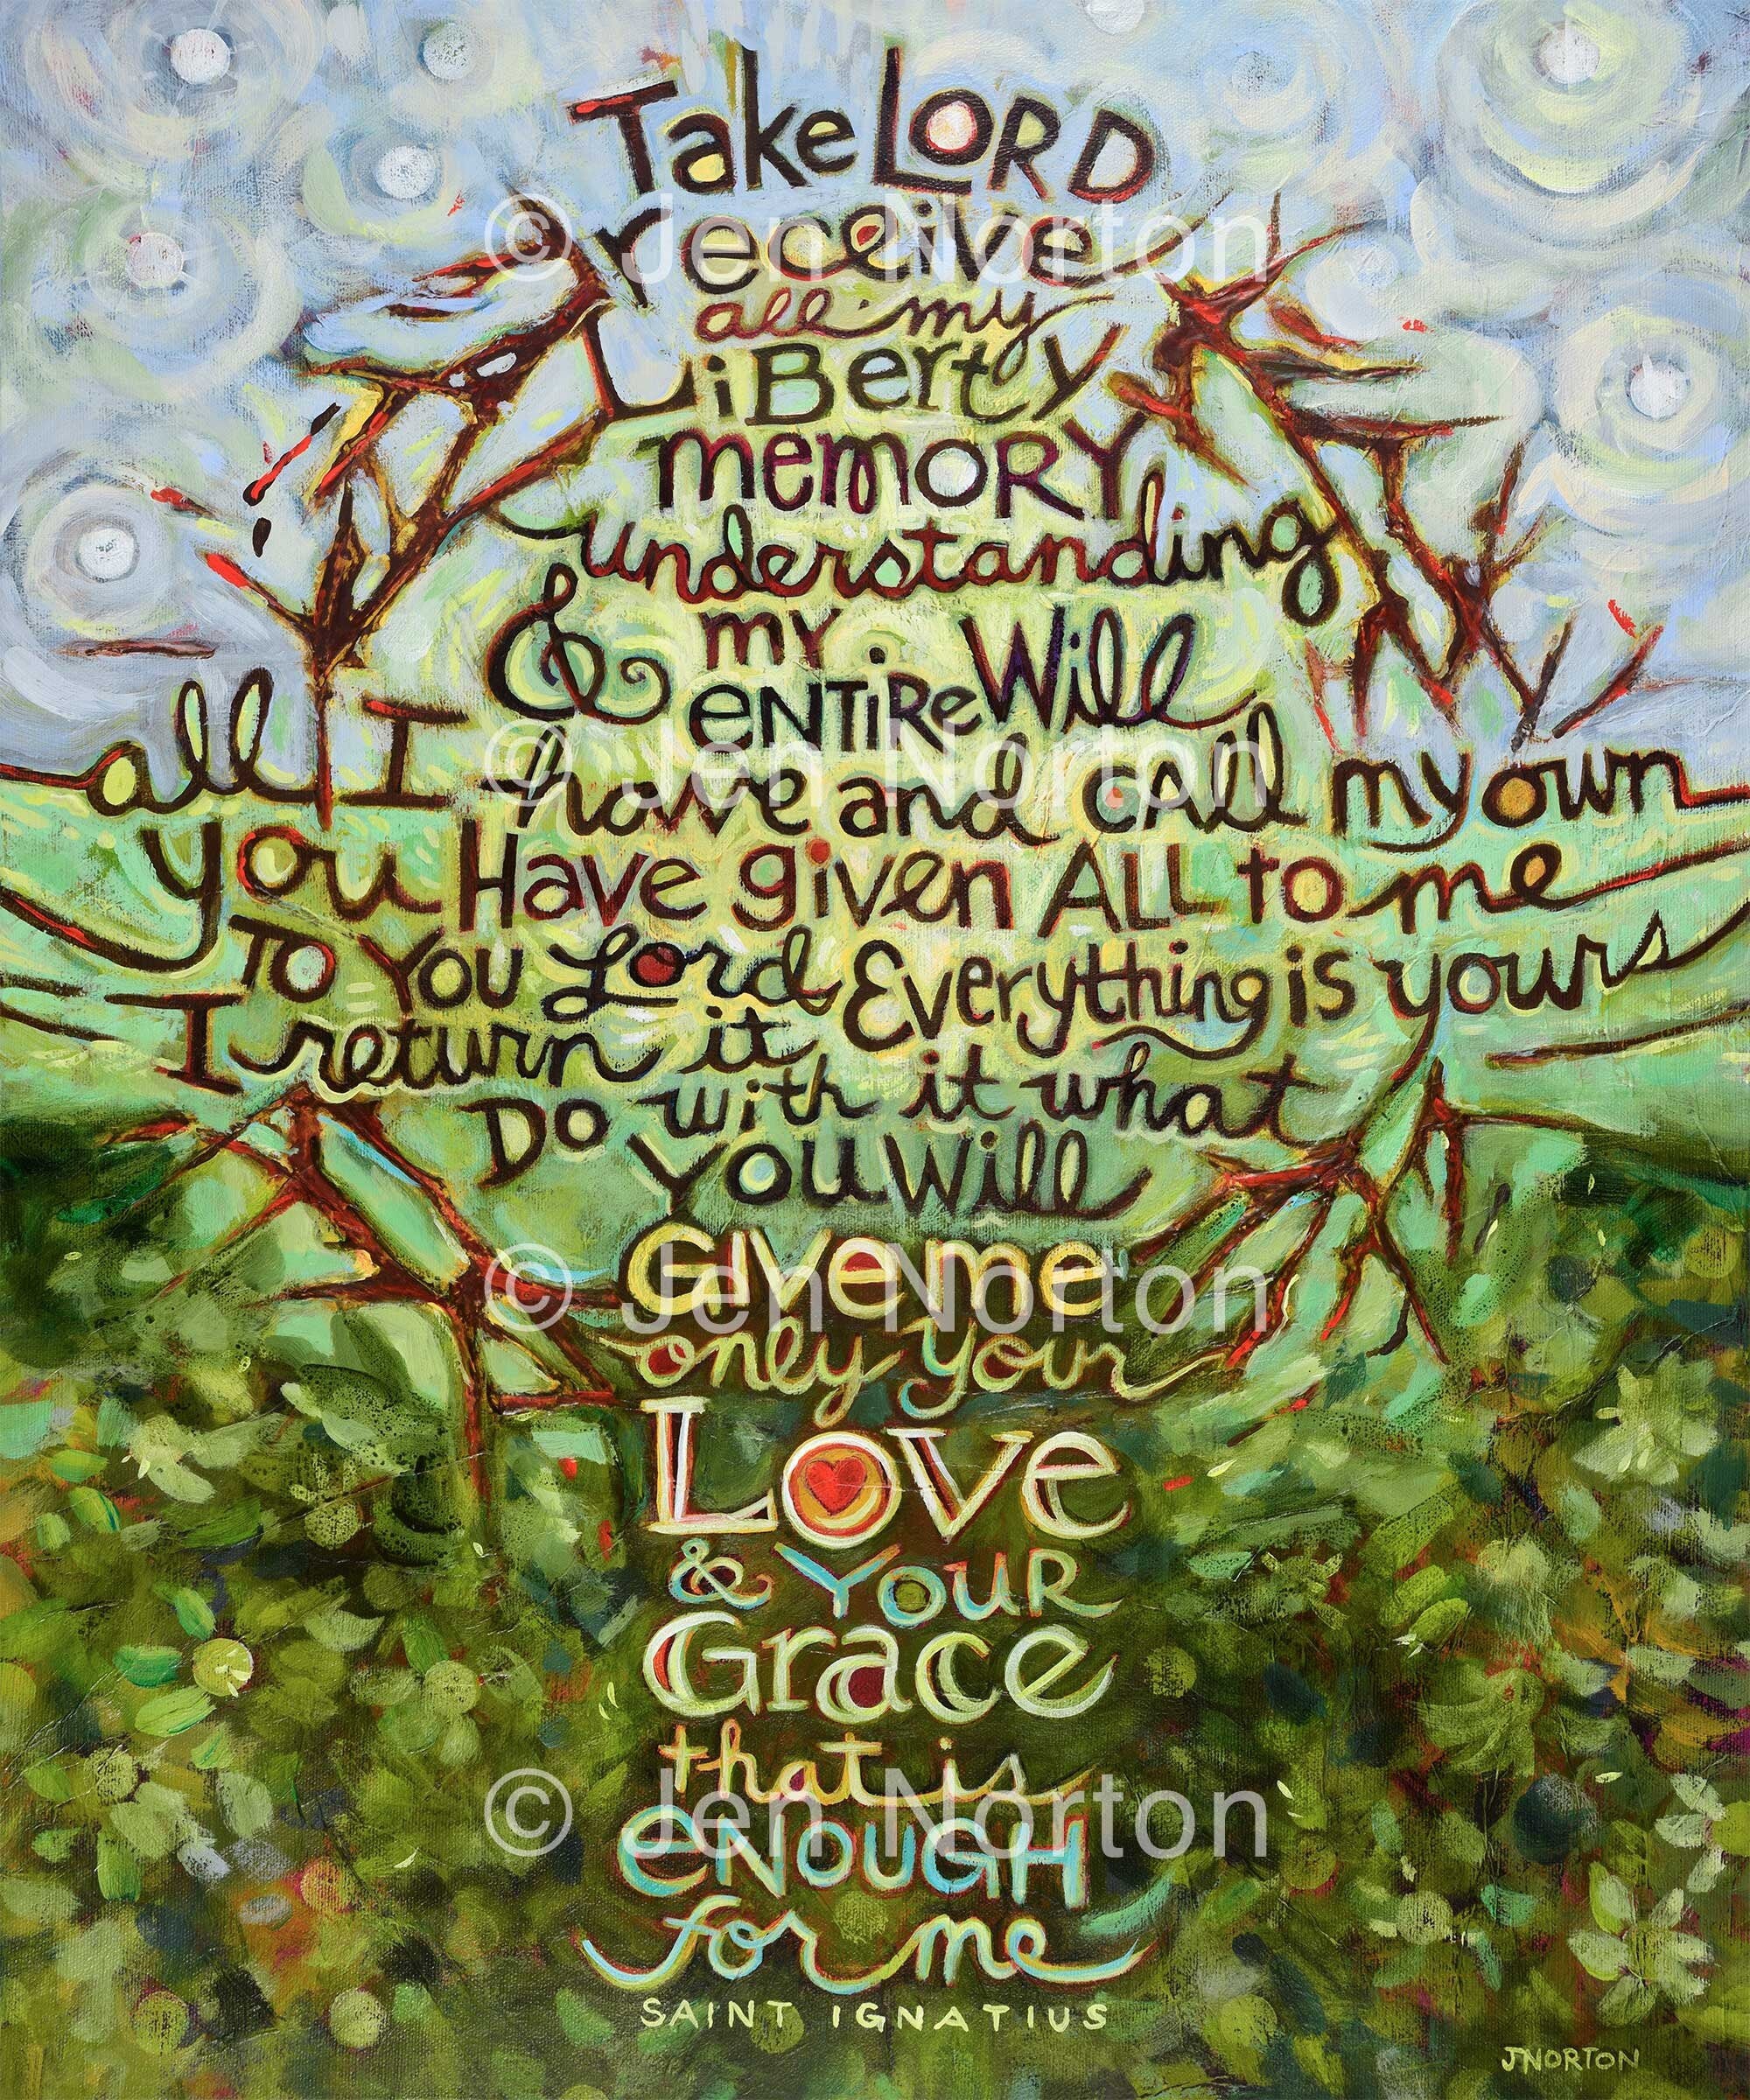 Take LORD
receive
all my
LiBerty
memory
understanding
& my
ENTiRe Will
all I have and call my own
you Have given ALL to me
To You Lord Everything is yours
I return it
Do with it what
You Will
GIVE me
only your
Love
& YOUR
Grace
that is
eNOUGH
for me
SAINT IGNATIUS
JNORTON
© Jen Norton
© Jen Norton
© Jen Norton
© Jen Norton